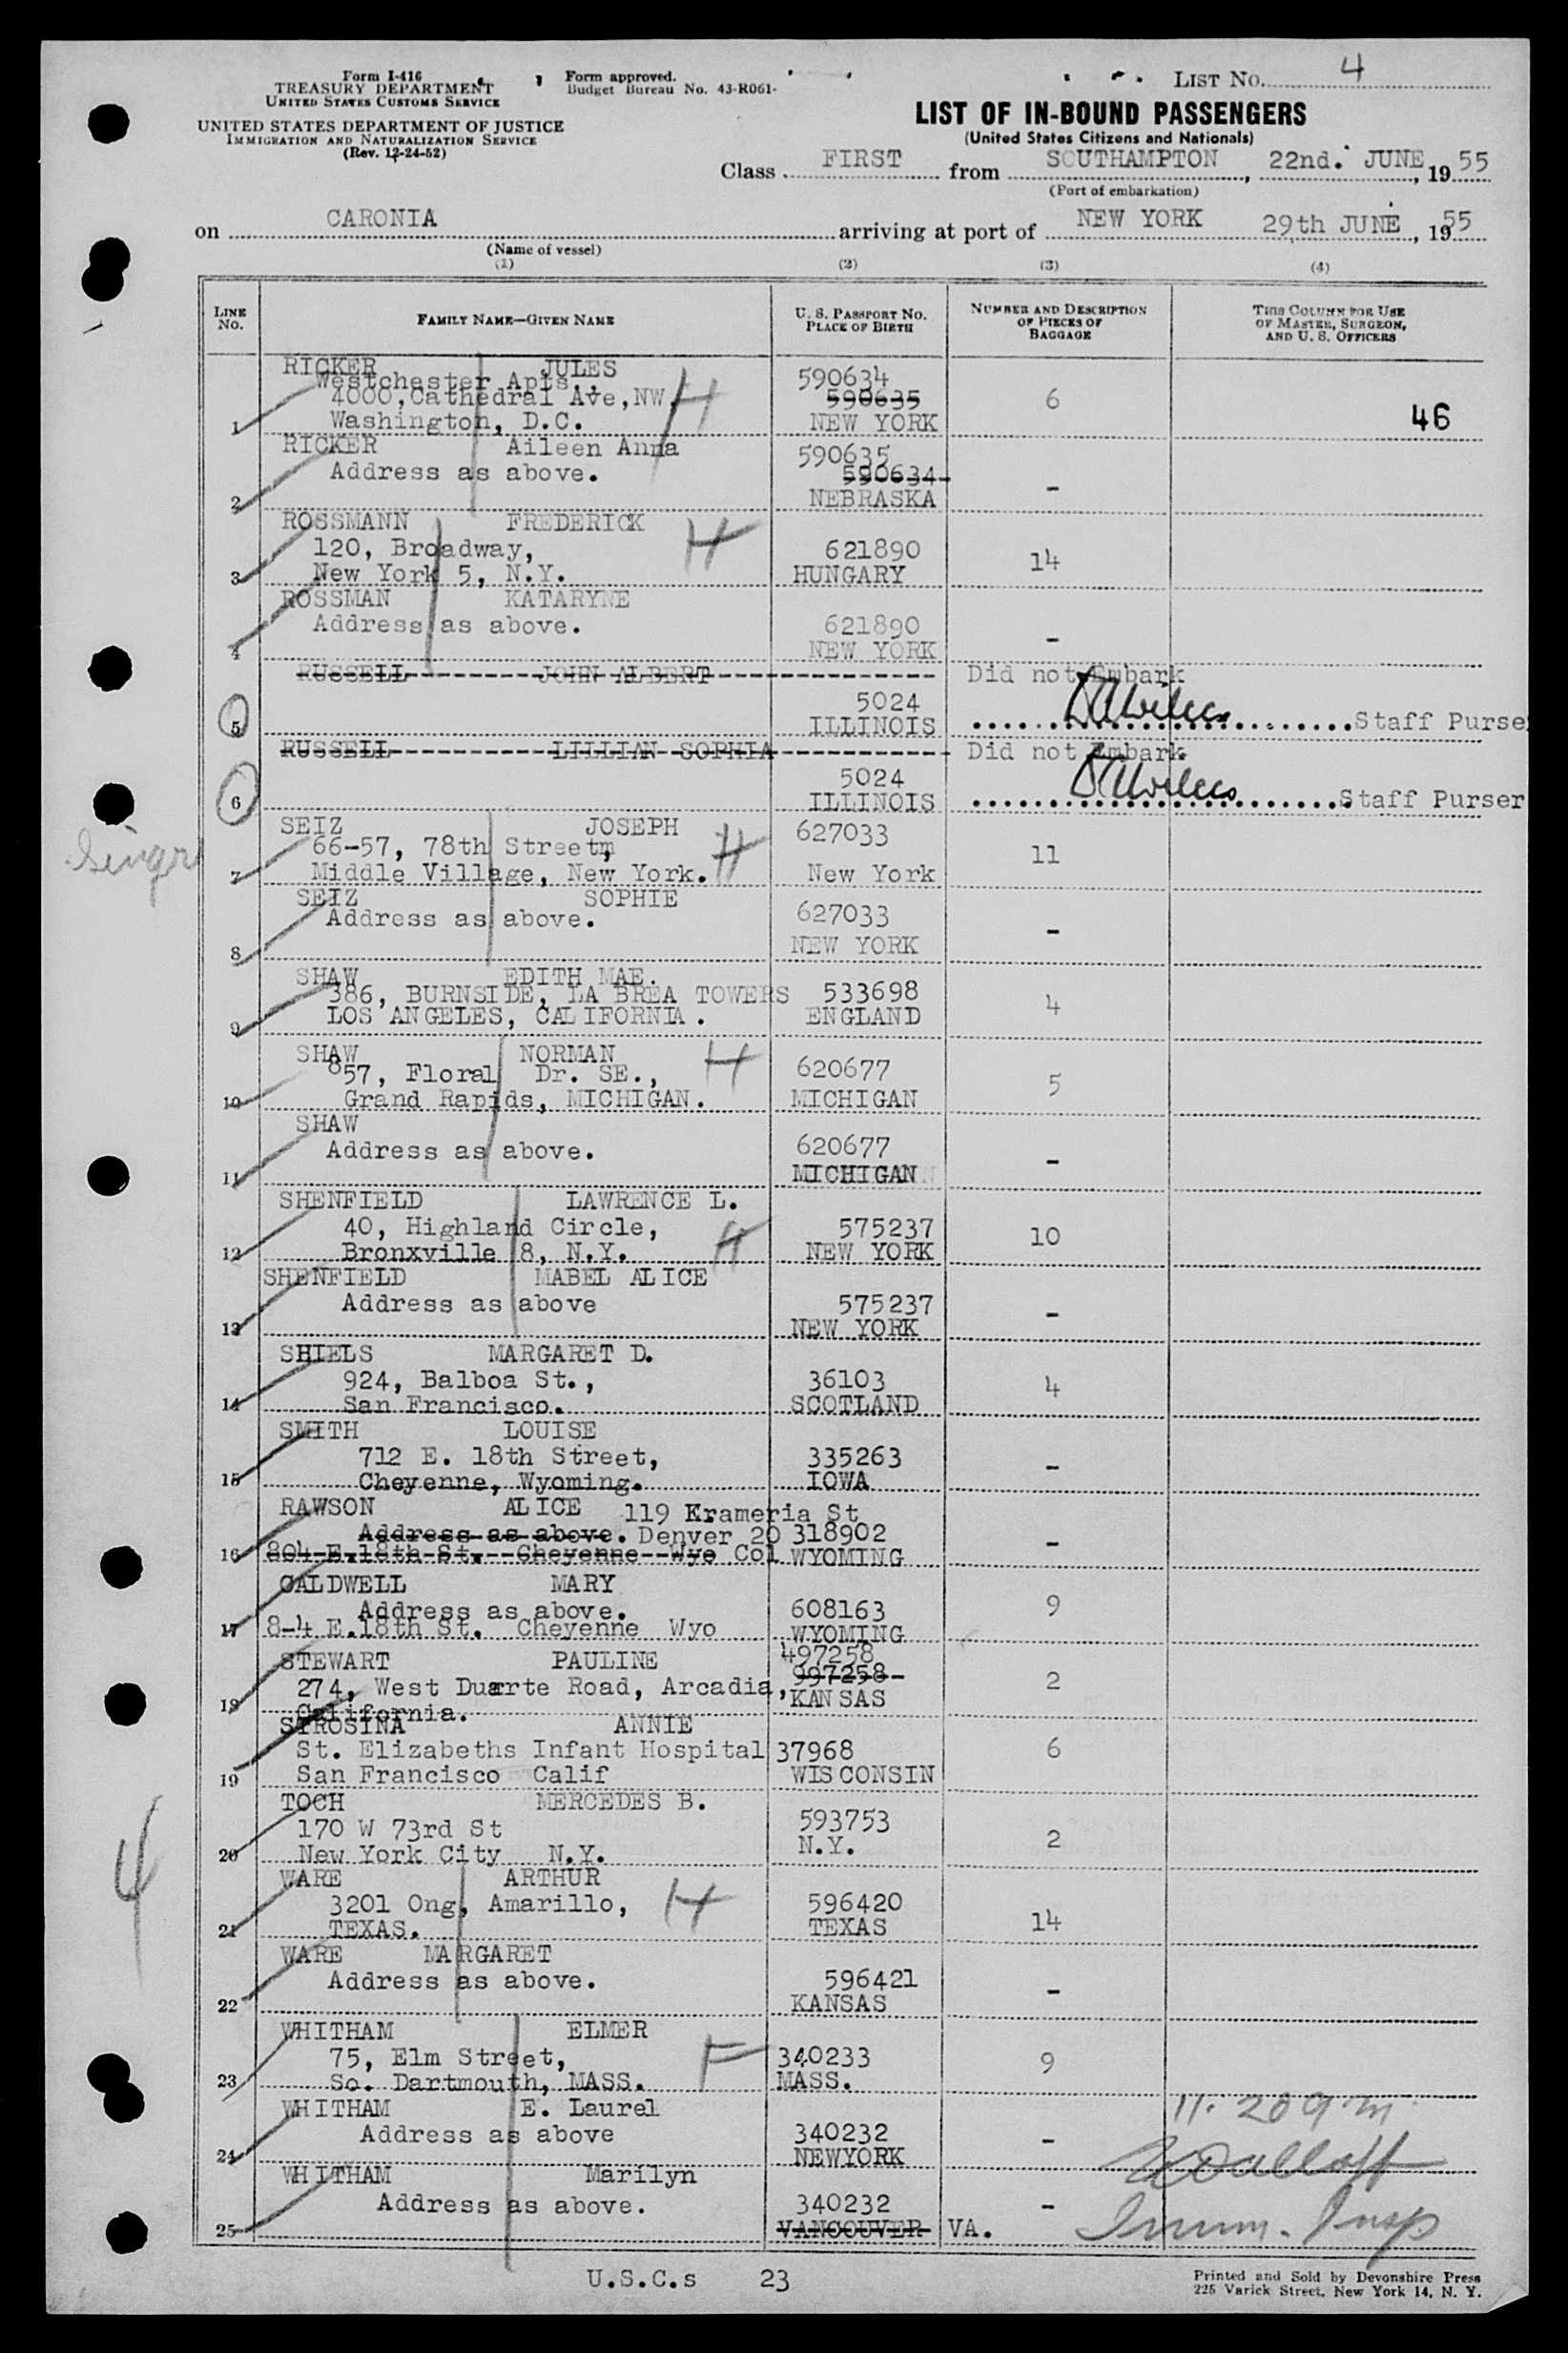 Form I-416
TREASURY DEPARTMENT
UNITED STATES CUSTOMS SERVICE
UNITED STATES DEPARTMENT OF JUSTICE
IMMIGRATION AND NATURALIZATION SERVICE
(Rev. 12-24-52)
Form approved.
Budget Bureau No. 43-R061-
LIST No. 4
LIST OF IN-BOUND PASSENGERS
(United States Citizens and Nationals)
Class FIRST from SOUTHAMPTON, 22nd. JUNE, 1955
(Port of embarkation)
on CARONIA arriving at port of NEW YORK 29th JUNE, 1955
(Name of vessel)
(1) (2) (3) (4)
LINE No. FAMILY NAME—GIVEN NAME U. S. PASSPORT No. PLACE OF BIRTH NUMBER AND DESCRIPTION OF PIECES OF BAGGAGE THIS COLUMN FOR USE OF MASTER, SURGEON, AND U. S. OFFICERS
RICKER JULES 590634
Westchester Apts.,
4000, Cathedral Ave, NW. H 590635 6
1 Washington, D.C. NEW YORK 46
RICKER Aileen Anna 590635
Address as above. 590634 -
2 NEBRASKA
ROSSMANN FREDERICK H
120, Broadway, 621890 14
3 New York 5, N.Y. HUNGARY
ROSSMAN KATARYNE
Address as above. 621890 -
4 NEW YORK
RUSSELL JOHN ALBERT Did not Embark
5024
5 ILLINOIS Staff Purser
RUSSELL LILLIAN SOPHIA Did not Embark
5024
6 ILLINOIS Staff Purser
SEIZ JOSEPH 627033
66-57, 78th Streetm H 11
7 Middle Village, New York. New York
SEIZ SOPHIE
Address as above. 627033 -
8 NEW YORK
SHAW EDITH MAE.
386, BURNSIDE, LA BREA TOWERS 533698 4
9 LOS ANGELES, CALIFORNIA. ENGLAND
SHAW NORMAN H
857, Floral Dr. SE., 620677 5
10 Grand Rapids, MICHIGAN. MICHIGAN
SHAW
Address as above. 620677 -
11 MICHIGAN
SHENFIELD LAWRENCE L.
40, Highland Circle, H 575237 10
12 Bronxville 8, N.Y. NEW YORK
SHENFIELD MABEL ALICE
Address as above 575237 -
13 NEW YORK
SHIELS MARGARET D.
924, Balboa St., 36103 4
14 San Francisco. SCOTLAND
SMITH LOUISE
712 E. 18th Street, 335263 -
15 Cheyenne, Wyoming. IOWA
RAWSON ALICE 119 Krameria St
Address as above. Denver 20 318902 -
16 804 E.18th St. Cheyenne Wyo Col WYOMING
CALDWELL MARY
Address as above. 608163 9
17 8-4 E.18th St. Cheyenne Wyo WYOMING
STEWART PAULINE 497258
274, West Duarte Road, Arcadia, 997258 2
18 California. KANSAS
STROSINA ANNIE
St. Elizabeths Infant Hospital 37968 6
19 San Francisco Calif WISCONSIN
TOCH MERCEDES B.
170 W 73rd St 593753 2
20 New York City N.Y. N.Y.
WARE ARTHUR H
3201 Ong, Amarillo, 596420 14
21 TEXAS. TEXAS
WARE MARGARET
Address as above. 596421 -
22 KANSAS
WHITHAM ELMER
75, Elm Street, F 340233 9
23 So. Dartmouth, MASS. MASS.
WHITHAM E. Laurel 11.20 am
Address as above 340232 -
24 NEWYORK
WHITHAM Marilyn
Address as above. 340232 -
25 VANCOUVER VA. Imm. Insp
4
U.S.C.s 23
Printed and Sold by Devonshire Press
225 Varick Street, New York 14, N. Y.